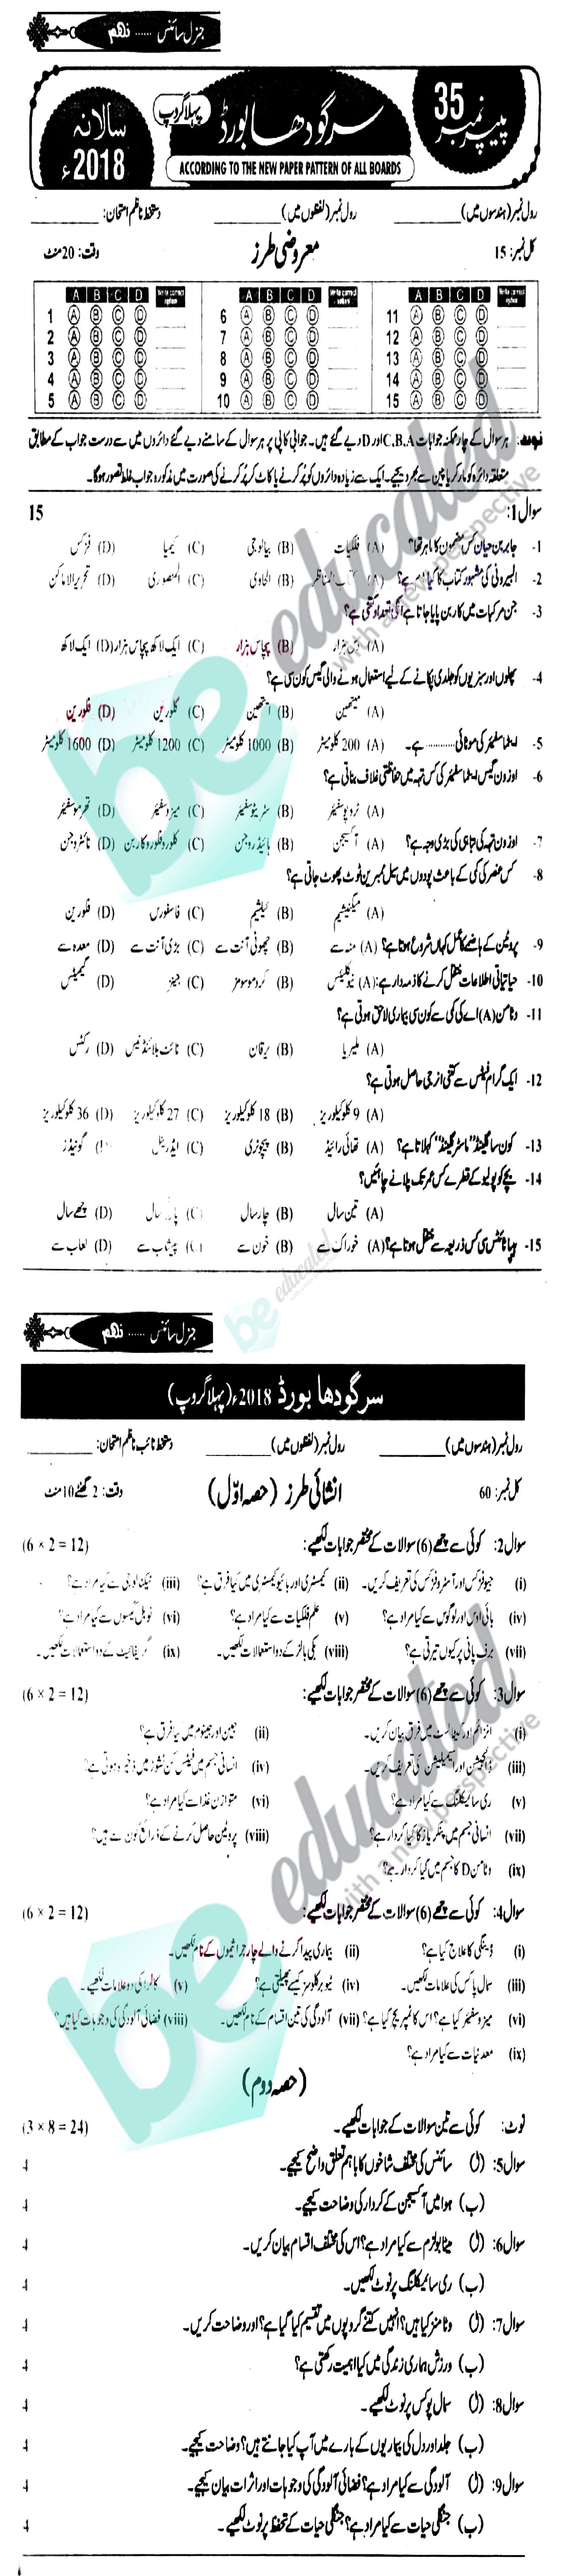 جنرل سائنس ...... نہم
پیپر نمبر 35
سرگودھا بورڈ
پہلا گروپ
سالانہ 2018ء
ACCORDING TO THE NEW PAPER PATTERN OF ALL BOARDS
رول نمبر (ہندسوں میں) ________ رول نمبر (لفظوں میں) ________ دستخط ناظم امتحان: ________
کل نمبر: 15 معروضی طرز وقت: 20 منٹ
A B C D Write correct option A B C D Write correct option A B C D Write correct option
1 A B C D 6 A B C D 11 A B C D
2 A B C D 7 A B C D 12 A B C D
3 A B C D 8 A B C D 13 A B C D
4 A B C D 9 A B C D 14 A B C D
5 A B C D 10 A B C D 15 A B C D
نوٹ: ہر سوال کے چار ممکنہ جوابات C،B،A اور D دیے گئے ہیں۔ جوابی کاپی پر ہر سوال کے سامنے دیے گئے دائروں میں سے درست جواب کے مطابق
متعلقہ دائرہ کو مارکر یا پین سے بھر دیجیے۔ ایک سے زیادہ دائروں کو پُر کرنے یا کاٹ کر پُر کرنے کی صورت میں مذکورہ جواب غلط تصور ہوگا۔
سوال 1: 15
1- جابر بن حیان کس مضمون کا ماہر تھا؟ (A) فلکیات (B) بیالوجی (C) کیمیا (D) فزکس
2- البیرونی کی مشہور کتاب کا کیا نام ہے؟ (A) کتاب المناظر (B) الحاوی (C) المنصوری (D) تحریر الاماکن
3- جن مرکبات میں کاربن پایا جاتا ہے انکی تعداد کتنی ہے؟
(A) ہزار (B) پچاس ہزار (C) ایک لاکھ پچاس ہزار (D) ایک لاکھ
4- پھلوں اور سبزیوں کو جلدی پکانے کے لیے استعمال ہونے والی گیس کون سی ہے؟
(A) میتھین (B) ایتھین (C) کلورین (D) فلورین
5- ایٹماسفیئر کی موٹائی ........... ہے۔ (A) 200 کلومیٹر (B) 1000 کلومیٹر (C) 1200 کلومیٹر (D) 1600 کلومیٹر
6- اوزون گیس ایٹماسفیئر کی کس تہہ میں حفاظتی غلاف بناتی ہے؟
(A) ٹروپوسفیئر (B) سٹریٹوسفیئر (C) میزوسفیئر (D) تھرموسفیئر
7- اوزون تہہ کی تباہی کی بڑی وجہ ہے؟ (A) آکسیجن (B) ہائیڈروجن (C) کلوروفلوروکاربن (D) نائٹروجن
8- کس عنصر کی کمی کے باعث پودوں میں سیل ممبرین ٹوٹ پھوٹ جاتی ہے؟
(A) میگنیشیم (B) کیلشیم (C) فاسفورس (D) فلورین
9- پروٹین کے ہاضمے کا عمل کہاں شروع ہوتا ہے؟ (A) منہ سے (B) چھوٹی آنت سے (C) بڑی آنت سے (D) معدہ سے
10- حیاتیاتی اطلاعات منتقل کرنے کا ذمہ دار ہے: (A) نیوکلیئس (B) کروموسومز (C) جینز (D) گیمیٹس
11- وٹامن (A) اے کی کمی سے کون سی بیماری لاحق ہوتی ہے؟
(A) ملیریا (B) یرقان (C) نائٹ بلائنڈنیس (D) رکٹس
12- ایک گرام فیٹس سے کتنی انرجی حاصل ہوتی ہے؟
(A) 9 کلوکیلوریز (B) 18 کلوکیلوریز (C) 27 کلوکیلوریز (D) 36 کلوکیلوریز
13- کون سا گلینڈ "ماسٹر گلینڈ" کہلاتا ہے؟ (A) تھائی رائیڈ (B) پچوٹری (C) ایڈرینل (D) گونیڈز
14- بچے کو پولیو کے قطرے کس عمر تک پلانے چاہئیں؟
(A) تین سال (B) چار سال (C) پانچ سال (D) چھے سال
15- ہیپاٹائٹس سی کس ذریعہ سے منتقل ہوتا ہے؟ (A) خوراک سے (B) خون سے (C) پیشاب سے (D) لعاب سے
be educated
with a new perspective
جنرل سائنس ...... نہم
سرگودھا بورڈ 2018ء (پہلا گروپ)
رول نمبر (ہندسوں میں) ________ رول نمبر (لفظوں میں) ________ دستخط نائب ناظم امتحان: ________
کل نمبر: 60 انشائی طرز (حصہ اوّل) وقت: 2 گھنٹے 10 منٹ
سوال 2: کوئی سے چھے (6) سوالات کے مختصر جوابات لکھیے: (6 × 2 = 12)
(i) جیوفزکس اور آسٹروفزکس کی تعریف کریں۔ (ii) کیمسٹری اور بائیوکیمسٹری میں کیا فرق ہے؟ (iii) ٹیکنالوجی سے کیا مراد ہے؟
(iv) بائی اوس اور لوگوس سے کیا مراد ہے؟ (v) علم فلکیات سے کیا مراد ہے؟ (vi) نوبل گیسوں سے کیا مراد ہے؟
(vii) برف پانی پر کیوں تیرتی ہے؟ (viii) بکی بالز کے دو استعمالات لکھیں۔ (ix) گریفائیٹ کے دو استعمالات لکھیں۔
سوال 3: کوئی سے چھے (6) سوالات کے مختصر جوابات لکھیے: (6 × 2 = 12)
(i) انزائم اور کیٹالسٹ میں فرق بیان کریں۔ (ii) جین اور جینوم میں کیا فرق ہے؟
(iii) ڈائجیشن اور ایسیمیلیشن کی تعریف کریں۔ (iv) انسانی جسم میں فیٹس کن ٹشوز میں ذخیرہ ہوتی ہے؟
(v) ری سائیکلنگ سے کیا مراد ہے؟ (vi) متوازن غذا سے کیا مراد ہے؟
(vii) انسانی جسم میں پنکریاز کا کیا کردار ہے؟ (viii) پروٹین حاصل کرنے کے ذرائع کون سے ہیں؟
(ix) وٹامن D کا جسم میں کیا کردار ہے؟
سوال 4: کوئی سے چھے (6) سوالات کے مختصر جوابات لکھیے: (6 × 2 = 12)
(i) ڈینگی کا علاج کیا ہے؟ (ii) بیماری پیدا کرنے والے چار جراثیموں کے نام لکھیں۔
(iii) سمال پاکس کی علامات لکھیں۔ (iv) ٹیوبرکلوسز کیسے پھیلتی ہے؟ (v) کالرا کی دو علامات لکھیے۔
(vi) میزوسفیئر کیا ہے؟ اس کا ٹمپریچر کیا ہے؟ (vii) آلودگی کی تین اقسام کے نام لکھیں۔ (viii) فضائی آلودگی کی وجوہات کیا ہیں؟
(ix) معدنیات سے کیا مراد ہے؟
(حصہ دوم)
نوٹ: کوئی سے تین سوالات کے جوابات لکھیے۔ (3 × 8 = 24)
سوال 5: (ا) سائنس کی مختلف شاخوں کا باہم تعلق واضح کیجیے۔ 4
(ب) ہوا میں آکسیجن کے کردار کی وضاحت کیجیے۔ 4
سوال 6: (ا) میٹابولزم سے کیا مراد ہے؟ اس کی مختلف اقسام بیان کریں۔ 4
(ب) ری سائیکلنگ پر نوٹ لکھیں۔ 4
سوال 7: (ا) وٹامنز کیا ہیں؟ انہیں کتنے گروپوں میں تقسیم کیا گیا ہے؟ اور وضاحت کریں۔ 4
(ب) ورزش ہماری زندگی میں کیا اہمیت رکھتی ہے؟ 4
سوال 8: (ا) سمال پوکس پر نوٹ لکھیے۔ 4
(ب) جلد اور دل کی بیماریوں کے بارے میں آپ کیا جانتے ہیں؟ وضاحت کیجیے۔ 4
سوال 9: (ا) آلودگی سے کیا مراد ہے؟ فضائی آلودگی کی وجوہات اور اثرات بیان کیجیے۔ 4
(ب) جنگلی حیات سے کیا مراد ہے؟ جنگلی حیات کے تحفظ پر نوٹ لکھیے۔ 4
be educated
with a new perspective